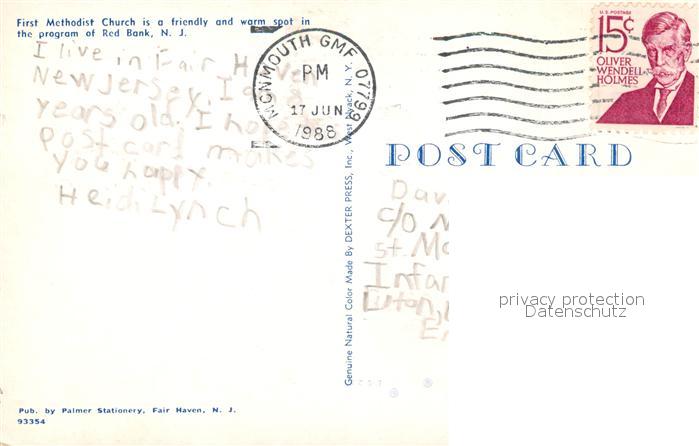 First Methodist Church is a friendly and warm spot in
the program of Red Bank, N. J.
I live in Fair Haven
New Jersey. I am 8
years old. I hope
post card makes
you happy.
Heidi Lynch
MONMOUTH GMF 07799
PM
17 JUN
1988
U.S. POSTAGE
15¢
OLIVER
WENDELL
HOLMES
POST CARD
Genuine Natural Color Made By DEXTER PRESS, Inc., West Nyack, N. Y.
Dav
c/o
st. Ma
Infan
Luton,
E
privacy protection
Datenschutz
Pub. by Palmer Stationery, Fair Haven, N. J.
93354